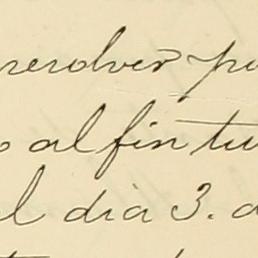 resolver pu
o al fin tu
l dia 3. a